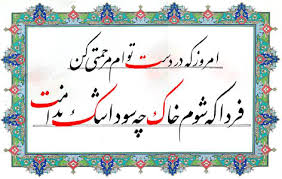 امروز که در دست توام مرحمتی کن
فردا که شوم خاک چه سود اشک ندامت